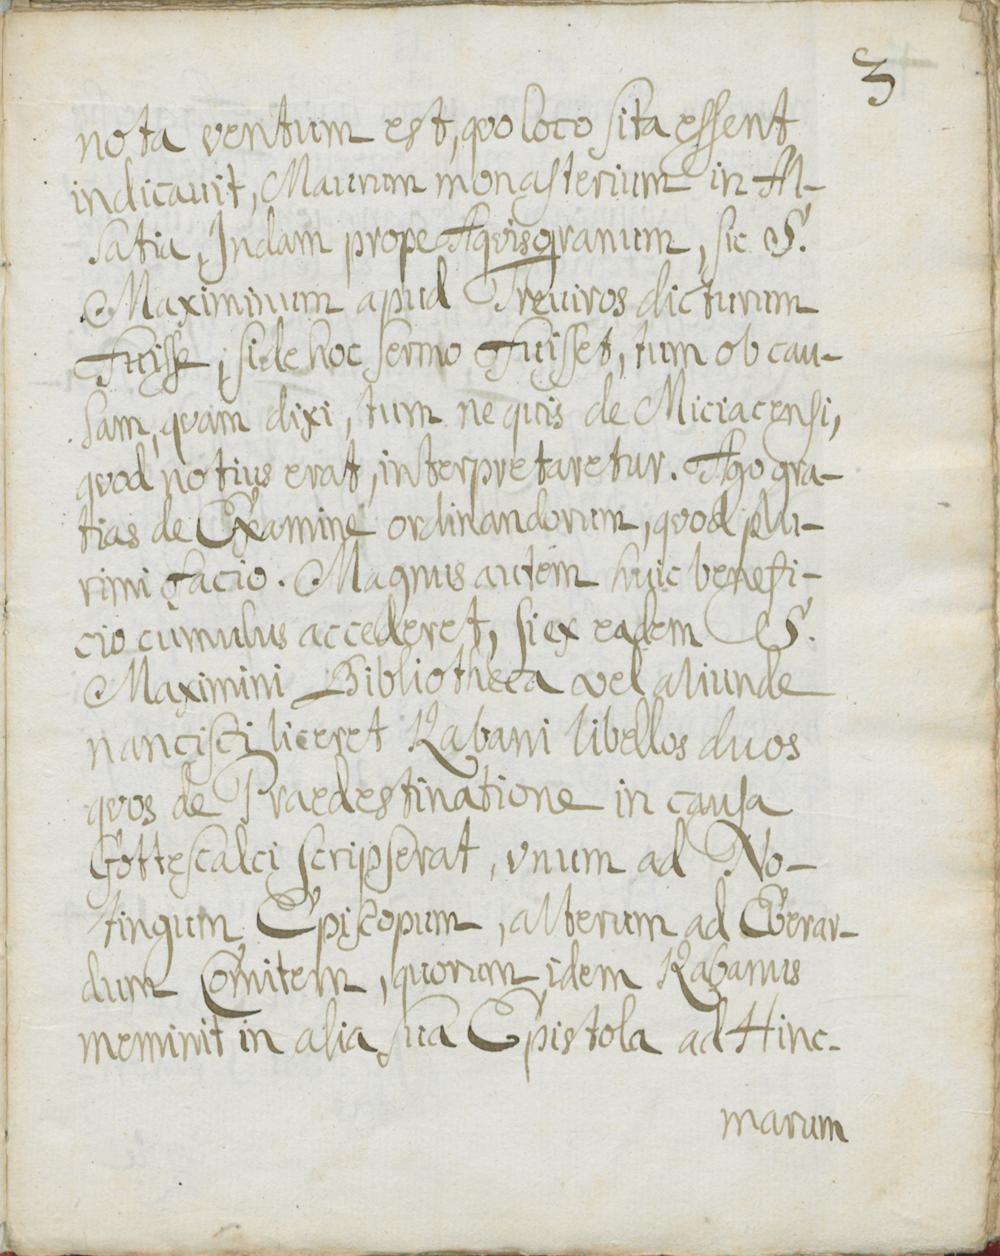 3
nota ventum est, quo loco sita essent
indicauit, Maurum monasterium in Al-
satia, Indam prope Aquisgranum, sic S.
Maximinum apud Treuiros dicturum
fuisse, si de hoc sermo fuisset, tum ob cau-
sam, quam dixi, tum ne quis de Miciacensi,
quod notius erat, interpretaretur. Ago gra-
tias de Examine ordinandorum, quod plu-
rimi facio. Magnus autem huic benefi-
cio cumulus accederet, si ex eadem S.
Maximini Bibliotheca vel aliunde
nancisci liceret Rabani libellos duos
quos de Praedestinatione in causa
Gottescalci scripserat, vnum ad No-
tingum Episcopum, alterum ad Eberar-
dum Comitem, quorum idem Rabanus
meminit in alia sua Epistola ad Hinc-
marum